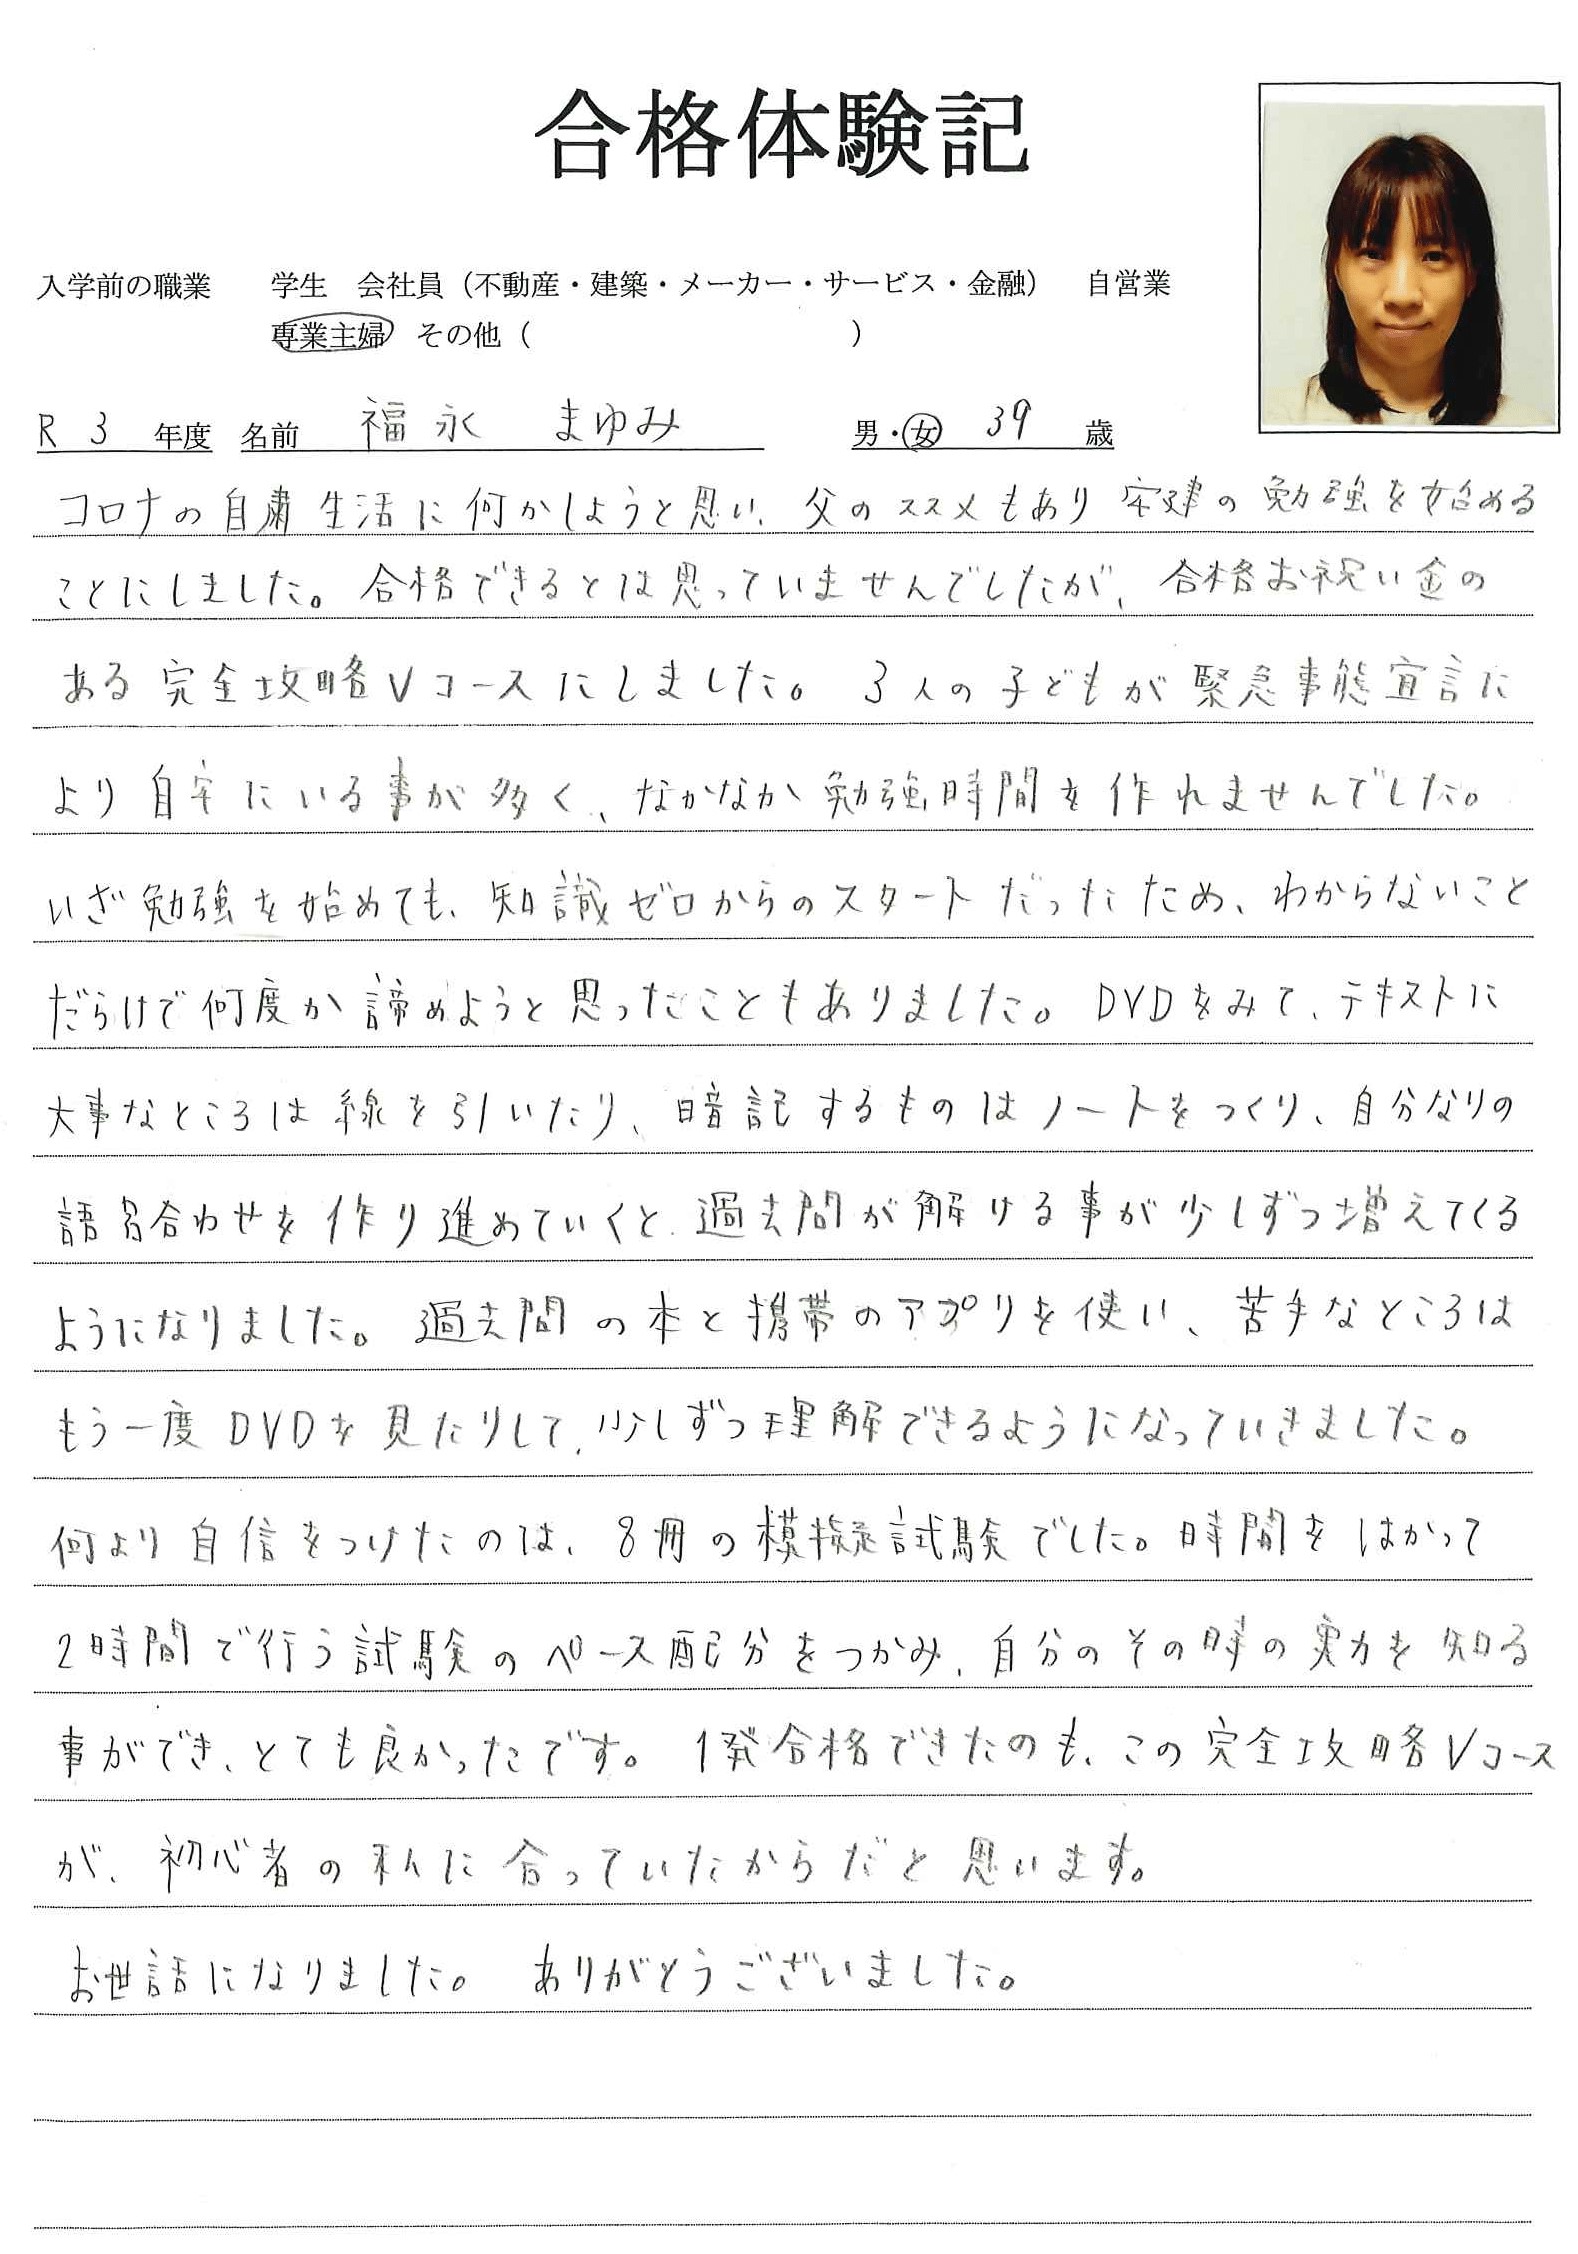 合格体験記
入学前の職業　学生　会社員（不動産・建築・メーカー・サービス・金融）　自営業
専業主婦　その他（　　　　　）
R 3 年度　名前　福永 まゆみ　男・女　39 歳
コロナの自粛生活に何かしようと思い、父のススメもあり宅建の勉強を始める
ことにしました。合格できるとは思っていませんでしたが、合格お祝い金の
ある完全攻略Vコースにしました。3人の子どもが緊急事態宣言に
より自宅にいる事が多く、なかなか勉強時間を作れませんでした。
いざ勉強を始めても、知識ゼロからのスタートだったため、わからないこと
だらけで何度か諦めようと思ったこともありました。DVDをみて、テキストに
大事なところは線を引いたり、暗記するものはノートをつくり、自分なりの
語呂合わせを作り進めていくと、過去問が解ける事が少しずつ増えてくる
ようになりました。過去問の本と携帯のアプリを使い、苦手なところは
もう一度DVDを見たりして、少しずつ理解できるようになっていきました。
何より自信をつけたのは、8冊の模擬試験でした。時間をはかって
2時間で行う試験のペース配分をつかみ、自分のその時の実力を知る
事ができ、とても良かったです。1発合格できたのも、この完全攻略Vコース
が、初心者の私に合っていたからだと思います。
お世話になりました。ありがとうございました。